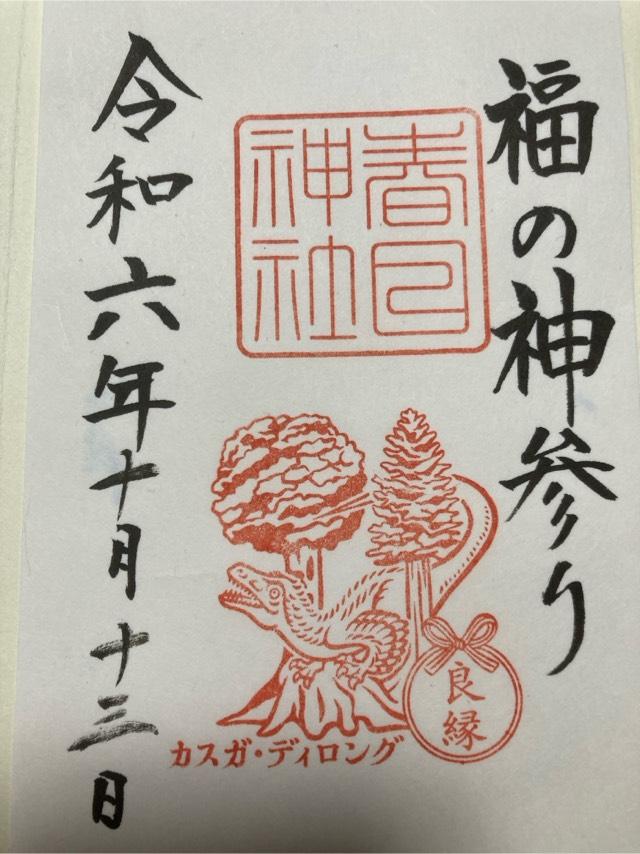 福の神参り
春日
神社
良縁
カスガ・ディロング
令和六年十月十三日